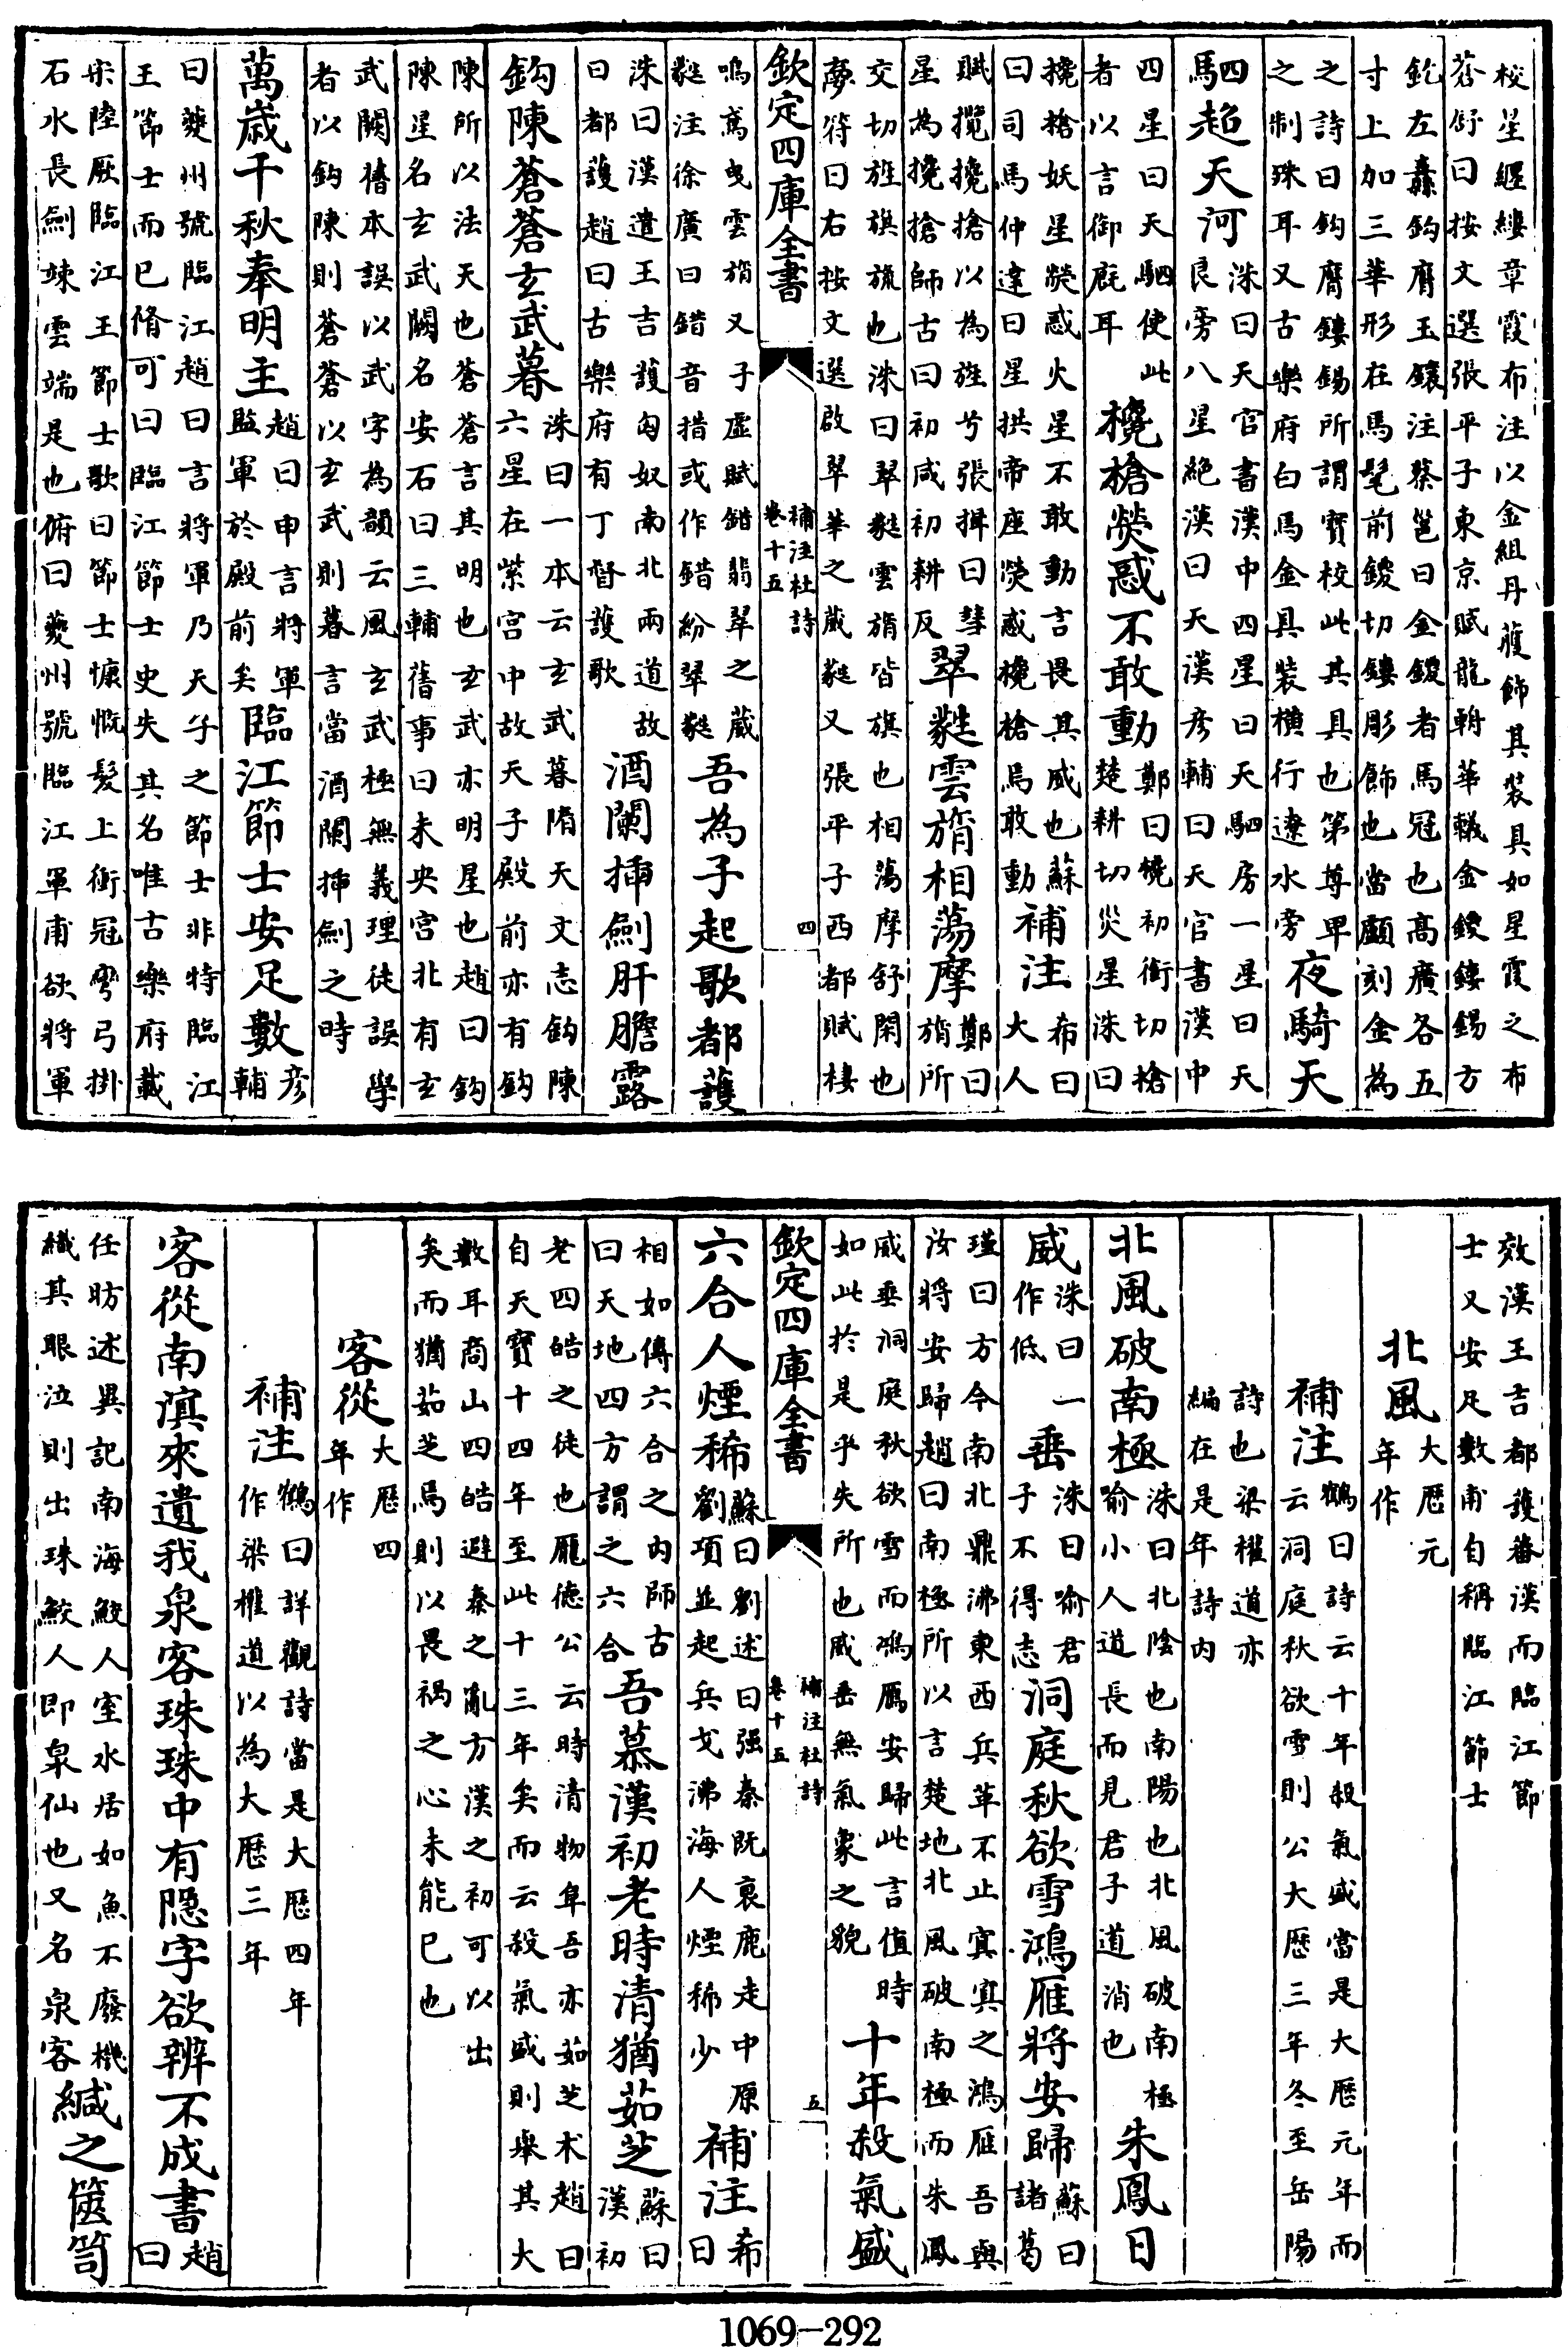 校星纒縷章霞布注以金組丹雘飾其裝具如星霞之布
蒼舒曰按文選張平子東京賦龍輈華轙金鍐鏤錫方
釳左纛鈎膺玉鑲注蔡邕曰金鍐者馬冠也髙廣各五
寸上加三華形在馬髦前鍐切鏤彫飾也當顱刻金為
之詩曰鈎膺鏤錫所謂寶校此其具也第尊卑
之制殊耳又古樂府白馬金具裝橫行遼水旁
夜騎天
駟超天河
洙曰天官書漢中四星曰天駟房一星曰天
良旁八星絶漢曰天漢彦輔曰天官書漢中
四星曰天駟使此
者以言御廐耳
欃槍熒惑不敢動
鄭曰欃初銜切槍
楚耕切災星洙曰
攙搶妖星熒惑火星不敢動言畏其威也蘇
曰司馬仲達曰星拱帝座熒惑欃槍焉敢動
補注
希曰
大人
賦攬攙搶以為旌兮張揖曰彗
星為攙搶師古曰初咸初耕反
翠蕤雲旓相蕩摩
鄭曰
旓所
交切旌旗旒也洙曰翠蕤雲旓皆旗也相蕩摩舒閑也
夢符曰右按文選啟翠華之葳蕤又張平子西都賦棲
欽定四庫全書
補注杜詩
卷十五
四
鳴鳶曳雲旓又子虛賦錯翡翠之葳
蕤注徐廣曰錯音措或作錯紛翠蕤
吾為子起歌都護
洙曰漢遣王吉護匈奴南北兩道故
曰都護趙曰古樂府有丁督護歌
酒闌揷劎肝膽露
鈎陳蒼蒼玄武暮
洙曰一本云玄武暮隋天文志鈎陳
六星在紫宮中故天子殿前亦有鈎
陳所以法天也蒼蒼言其明也玄武亦明星也趙曰鈎
陳星名玄武闕名安石曰三輔舊事曰未央宮北有玄
武闕樁本誤以武字為韻云風玄武極無義理徒誤學
者以鈎陳則蒼蒼以玄武則暮言當酒闌揷劎之時
萬歲千秋奉明主
趙曰申言將軍
監軍於殿前矣
臨江節士安足數
彦
輔
曰夔州號臨江趙曰言將軍乃天子之節士非特臨江
王節士而已脩可曰臨江節士史失其名唯古樂府載
宋陸厥臨江王節士歌曰節士慷慨髮上衝冠彎弓掛
石水長劎竦雲端是也俯曰夔州號臨江軍甫欲將軍
效漢王吉都護蕃漢而臨江節
士又安足數甫自稱臨江節士
北風
大厯元
年作
補注
鶴曰詩云十年殺氣盛當是大厯元年而
云洞庭秋欲雪則公大厯三年冬至岳陽
詩也梁權道亦
編在是年詩内
北風破南極
洙曰北陰也南陽也北風破南極
喻小人道長而見君子道消也
朱鳳日
威
洙曰一
作低
垂
洙曰喻君
子不得志
洞庭秋欲雪鴻雁將安歸
蘇曰
諸葛
瑾曰方今南北鼎沸東西兵革不止寘寘之鴻雁吾與
汝將安歸趙曰南極所以言楚地北風破南極而朱鳳
威垂洞庭秋欲雪而鴻雁安歸此言值時
如此於是乎失所也威垂無氣象之貌
十年殺氣盛
欽定四庫全書
補注杜詩
卷十五
五
六合人煙稀
蘇曰劉述曰强秦既衰鹿走中原
劉項並起兵戈沸海人煙稀少
補注
希
曰
相如傳六合之内師古
曰天地四方謂之六合
吾慕漢初老時清猶茹芝
蘇曰
漢初
老四皓之徒也龐德公云時清物阜吾亦茹芝术趙曰
自天寶十四年至此十三年矣而云殺氣盛則舉其大
數耳商山四皓避秦之亂方漢之初可以出
矣而猶茹芝焉則以畏禍之心未能已也
客從
大厯四
年作
補注
鶴曰詳觀詩當是大厯四年
作梁權道以為大厯三年
客從南溟來遺我泉客珠珠中有隱字欲辨不成書
趙
曰
任昉述異記南海鮫人室水居如魚不廢機
織其眼泣則出珠鮫人即泉仙也又名泉客
緘之篋笥
1069-292